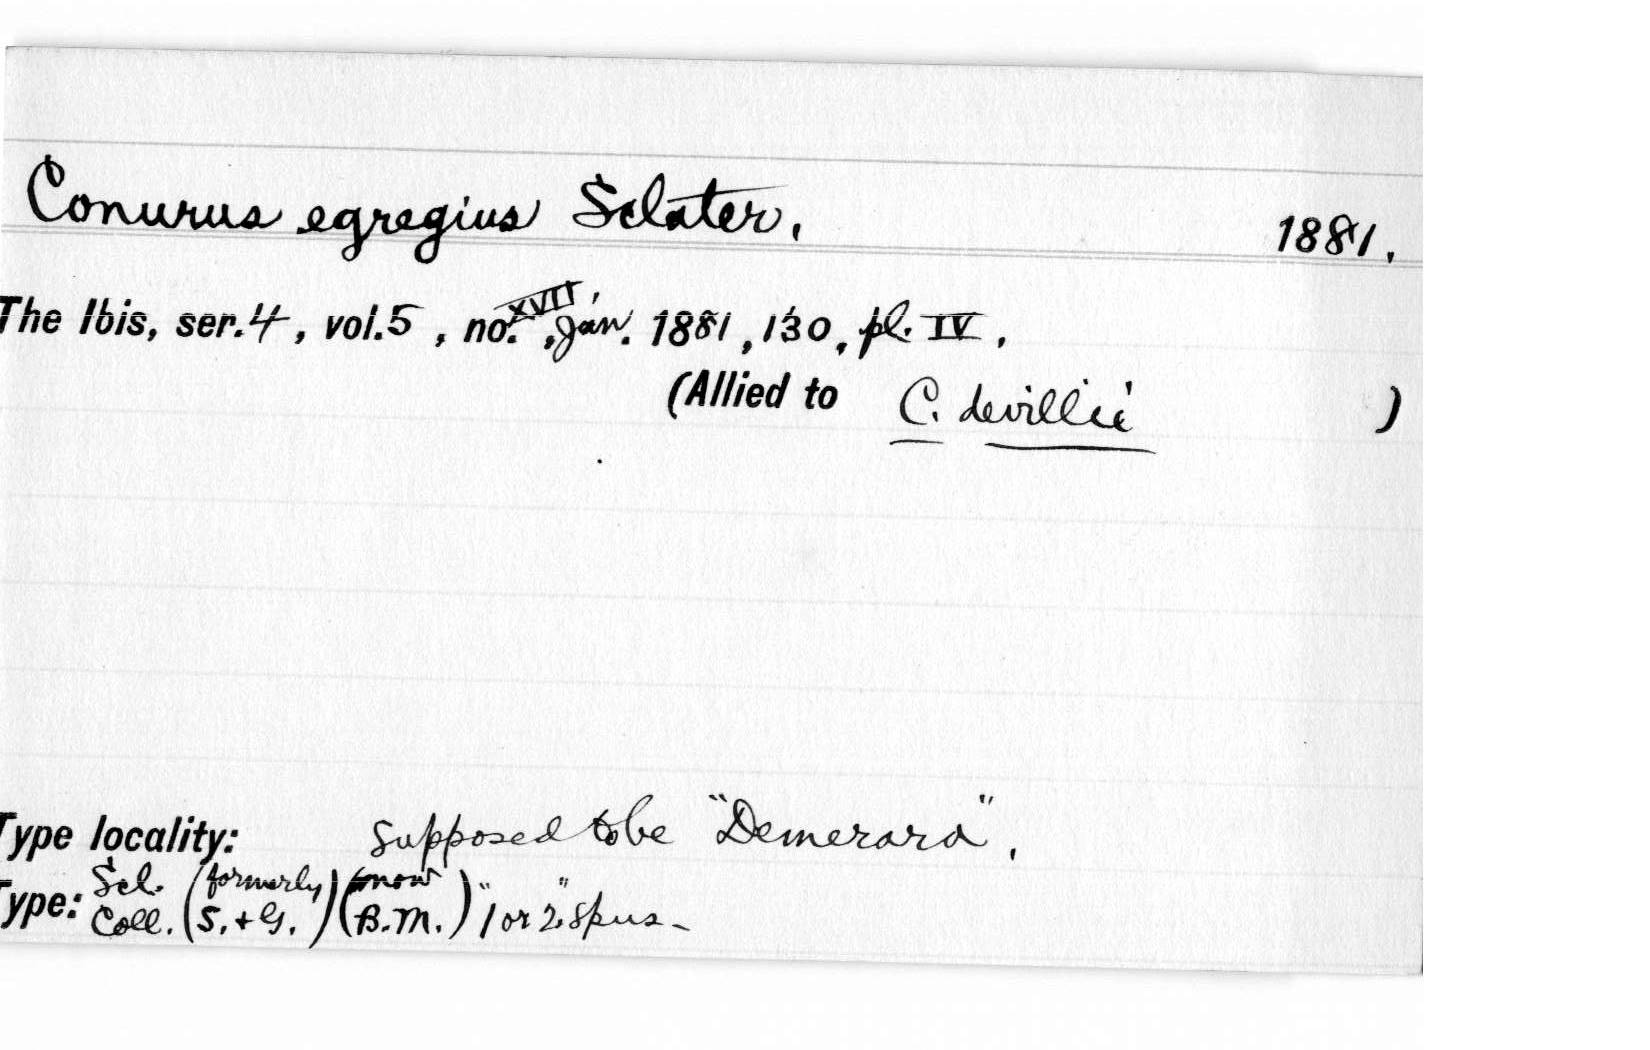 Conurus egregius Sclater, 1881.
The Ibis, ser. 4, vol. 5, no. XVII, Jan. 1881, 130, pl. IV.
(Allied to C. devillii )
Type locality: Supposed to be "Demerara".
Type: Scl. Coll. (formerly S. + G.) (now B.M.) "1 or 2" spns-